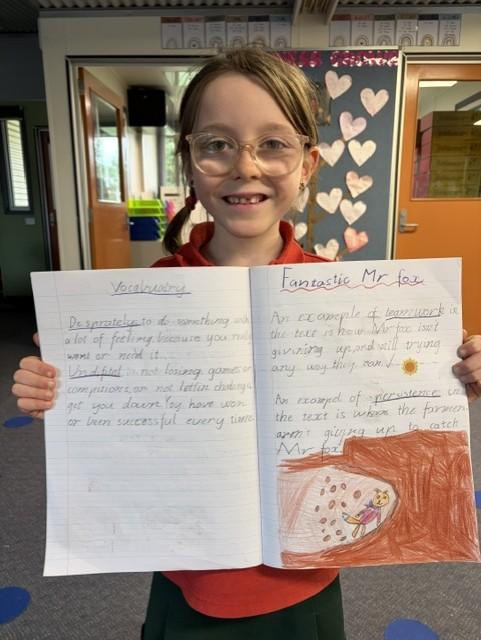 Vocabualry
Desprately to do something with
a lot of feeling because you really
want or need it.
not losing games or
not
get you down by have won
or been successful every time
Fantastic Mr fox
An example of teamwork in
the text is how Mr fox isn't
giving up and will trying
any way they can.
An example of persistence in
the text is when the farmers
aren't giving up to catch
Mr fox.